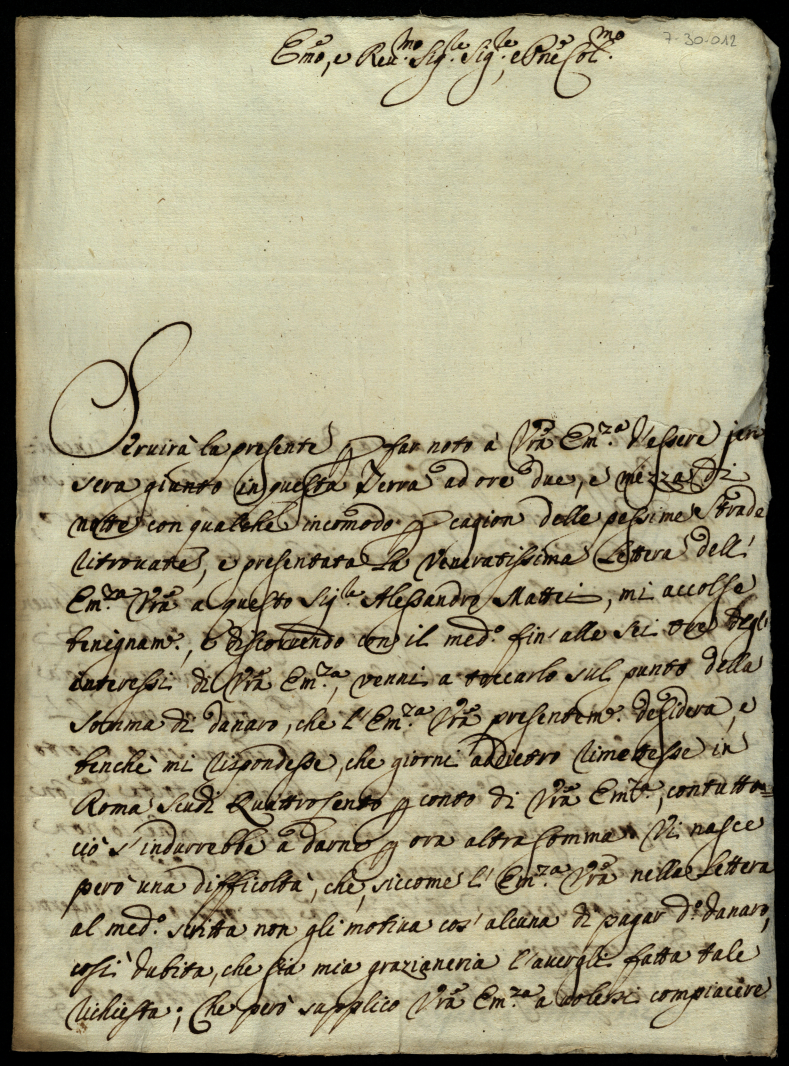 7-30-012
Em̃o, e Reu.mo Sig.re Sig.re, e Pñe Col.mo
Seruirà la presente p far noto à Vr̃a Em.za d'essere jeri
sera giunto in questa Terra ad ore due, e mezza di
notte con qualche incom̃odo p cagion delle pessime strade
ritrouate, e presentata la Veneratissima Lettera dell'
Em.za Vr̃a a questo Sig.re Alessandro Mattei, mi accolse
benignam.e, e discorrendo con il med.o fin'alle sei ore degl'
interessi di Vr̃a Em.za, venni a toccarlo sul punto della
somma di danaro, che l'Em.za Vr̃a presentem.e desidera, e
benche mi rispondesse, che giorni addietro rimettesse in
Roma scudi Quattrocento p conto di Vr̃a Em.za, contutto=
ciò s'indurrebbe à darne p ora altra somma. Vi nasce
però una difficoltà, che, siccome l'Em.za Vr̃a nella Lettera
al med.o scritta non gli motiua cos'alcuna di pagar d.o danaro,
così dubita, che sia mia grazianeria l'auergli fatta tale
richiesta; Che però supplico Vr̃a Em.za a uolersi compiacere